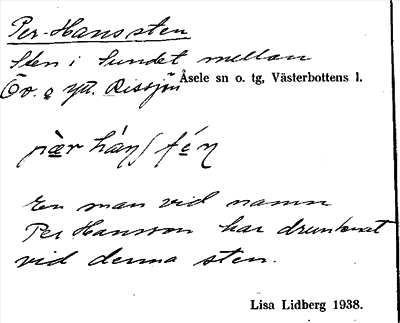 Per-Hanssten
Sten i Sundet mellan
Öv. o ytt. Rissjön
Åsele sn o. tg, Västerbottens l.
En man vid namn
Per Hansson har drunknat
vid denna sten.
Lisa Lidberg 1938.